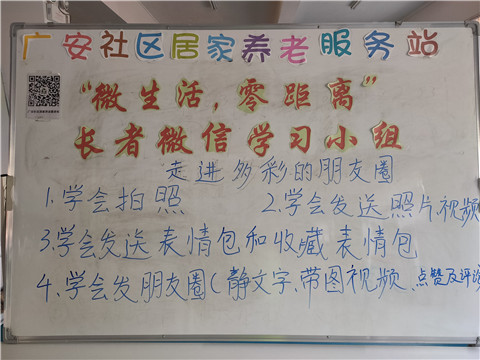 广安社区居家养老服务站
“微生活,零距离”
长者微信学习小组
走进多彩的朋友圈
1.学会拍照 2.学会发送照片.视频
3.学会发送表情包和收藏表情包
4、学会发朋友圈(静文字、带图视频、点赞及评论